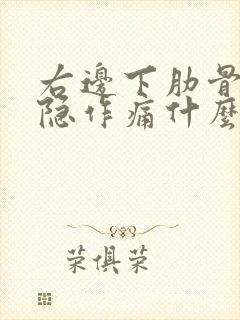 右邊下肋骨
隐作痛什麼
荣俱荣